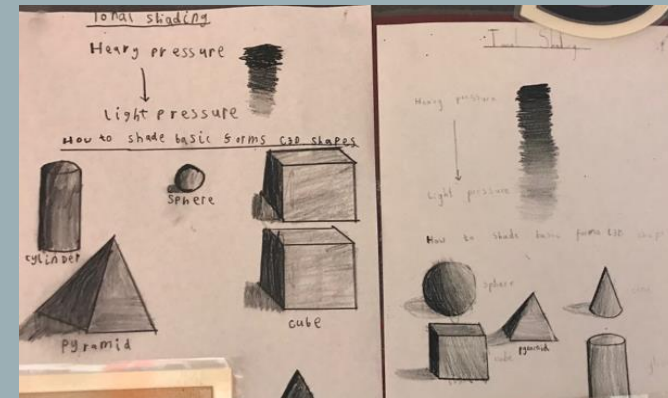 Tonal shading
Heavy pressure
Light pressure
How to shade basic forms C3D shapes
Sphere
cylinder
pyramid
cube
Tonal Shading
Heavy pressure
Light pressure
How to shade basic forms C3D shape
sphere
cone
pyramid
cube